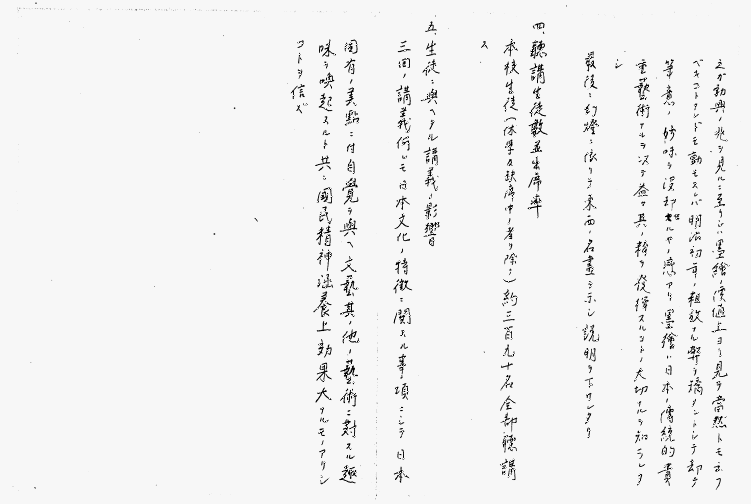 之ガ勃興ノ兆ヲ見ルニ至リシハ墨繪ノ價値上ヨリ見テ當然トモ云フ
ベキコトナレドモ動モスレバ明治初年ノ粗放ナル弊ヲ矯メントシテ却テ
筆意ノ妙味ヲ没却セルヤノ感アリ墨繪ハ日本ノ傳統的貴
重藝術ナルヲ以テ益々其ノ粹ヲ發揮スルコトノ大切ナルヲ知ラレタ
シ
最後ニ幻燈ニ依リテ東西ノ名畫ヲ示シ説明ヲ下サレタリ
四、聽講生徒數並出席率
本校生徒(休學及缺席中ノ者ヲ除ク)約三百九十名全部聽講
ス
五、生徒ニ與ヘタル講義ノ影響
三回ノ講義何レモ日本文化ノ特徴ニ關スル事項ニシテ日本
固有ノ美點ニ付自覺ヲ與ヘ文藝其ノ他ノ藝術ニ對スル趣
味ヲ喚起スルト共ニ國民精神涵養上効果大ナルモノアリシ
コトヲ信ズ